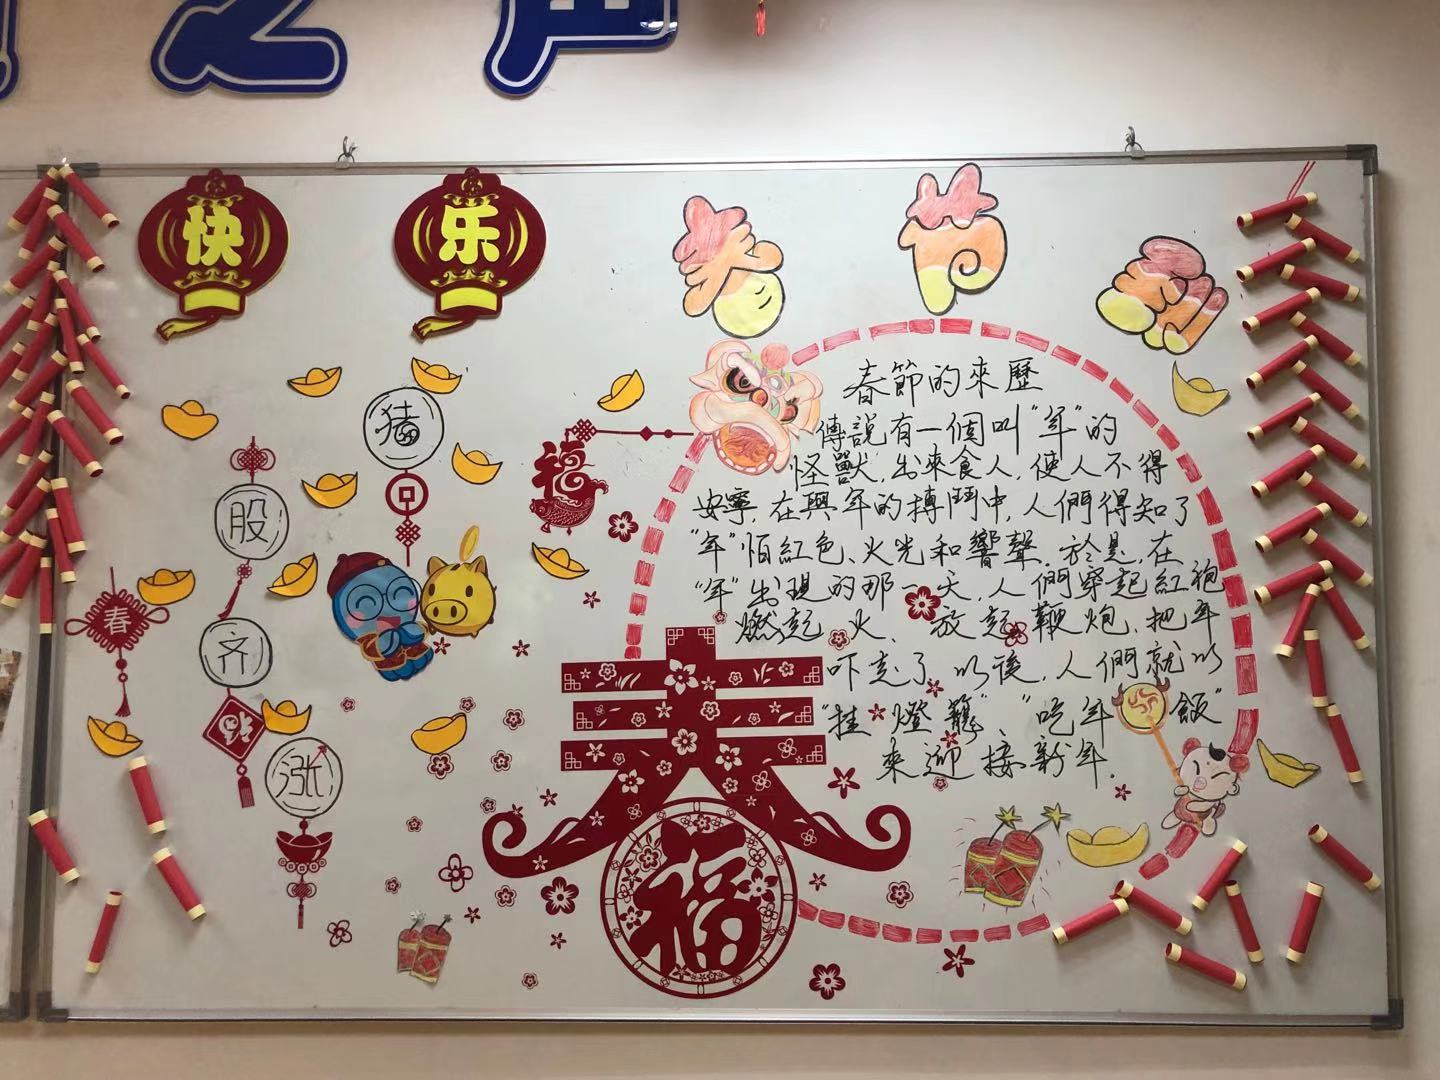 之声
快 乐
春
福
猪
股
齐
涨
春
福
春節的來歷
傳説有一個叫"年"的
怪獸,出來食人,使人不得
安寧,在與年的搏鬥中,人們得知了
"年"怕紅色、火光和響聲.於是,在
"年"出現的那一天,人們穿起紅袍
燃起火、放起鞭炮、把年
吓走了.以後,人們就以
"挂燈籠"、"吃年飯"
來迎接新年.